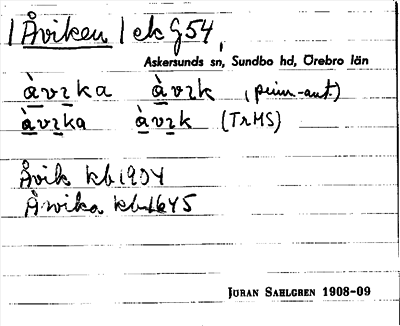 | Åviken | ek G54,
Askersunds sn, Sundbo hd, Örebro län
àvɪka àvɪk (prim.-ant.)
àvɪka àvɪk (TrMS)
Åvik kb 1904
Åwika kb 1645
JURAN SAHLGREN 1908-09